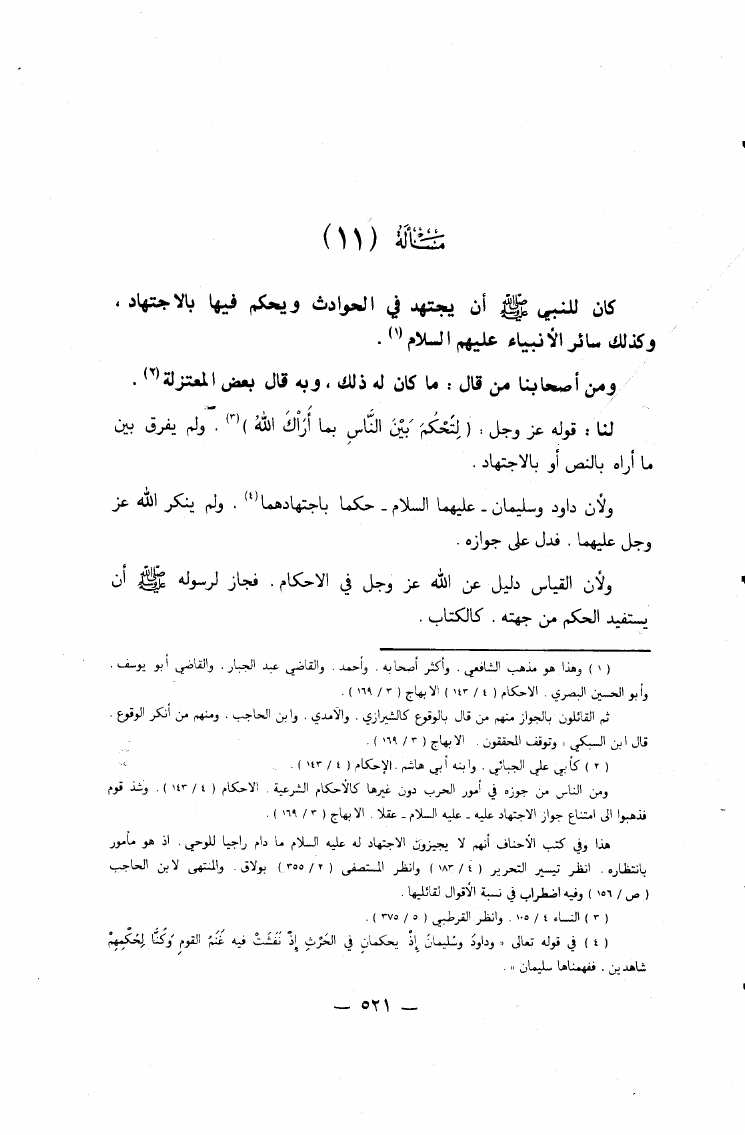 مسألة (١١)
كان للنبي ﷺ أن يجتهد في الحوادث ويحكم فيها بالاجتهاد ،
وكذلك سائر الأنبياء عليهم السلام (١) .
ومن أصحابنا من قال : ما كان له ذلك ، وبه قال بعض المعتزلة (٢) .
لنا : قوله عز وجل : ( لِتَحْكُمَ بَيْنَ النَّاسِ بما أَرَاكَ اللهُ ) (٣) . ولم يفرق بين
ما أراه بالنص أو بالاجتهاد .
ولأن داود وسليمان - عليهما السلام - حكما باجتهادهما (٤) . ولم ينكر الله عز
وجل عليهما . فدل على جوازه .
ولأن القياس دليل عن الله عز وجل في الاحكام . فجاز لرسوله ﷺ أن
يستفيد الحكم من جهته . كالكتاب .
( ١ ) وهذا هو مذهب الشافعي . وأكثر أصحابه . وأحمد . والقاضي عبد الجبار . والقاضي أبو يوسف .
وأبو الحسين البصري . الاحكام ( ٤ / ١٤٣ ) الابهاج ( ٣ / ١٦٩ ) .
ثم القائلون بالجواز منهم من قال بالوقوع كالشيرازي . والآمدي . وابن الحاجب . ومنهم من أنكر الوقوع .
قال ابن السبكي : وتوقف المحققون . الابهاج ( ٣ / ١٦٩ ) .
( ٢ ) كأبي علي الجبائي . وابنه أبي هاشم . الإحكام ( ٤ / ١٤٣ ) .
ومن الناس من جوزه في أمور الحرب دون غيرها كالأحكام الشرعية . الاحكام ( ٤ / ١٤٣ ) . وشذ قوم
فذهبوا الى امتناع جواز الاجتهاد عليه - عليه السلام - عقلا . الابهاج ( ٣ / ١٦٩ ) .
هذا وفي كتب الأحناف أنهم لا يجيزون الاجتهاد له عليه السلام ما دام راجيا للوحي . اذ هو مأمور
بانتظاره . انظر تيسير التحرير ( ٤ / ١٨٣ ) وانظر المستصفى ( ٢ / ٣٥٥ ) بولاق . والمنتهى لابن الحاجب
( ص / ١٥٦ ) وفيه اضطراب في نسبة الأقوال لقائليها .
( ٣ ) النساء ٤ / ١٠٥ . وانظر القرطبي ( ٥ / ٣٧٥ ) .
( ٤ ) في قوله تعالى « وداودَ وسُليمانَ إِذْ يحكمان في الحَرْثِ إِذْ نَفَشَتْ فيه غَنَمُ القوم وَكُنَّا لِحُكْمِهِمْ
شاهدين . ففهمناها سليمان » .
— ٥٢١ —